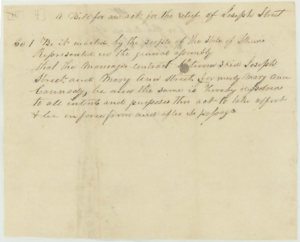 A Bill for an act for the relief of Joseph Street
Sec 1 Be it enacted by the people of the State of Illinois
Represented in the general assembly
That the Marriage contract between said Joseph
Street and Mary Ann Street, formerly Mary Ann
be and the same is hereby
to all intents and purposes this act to take effect
& be in force from and after its passage